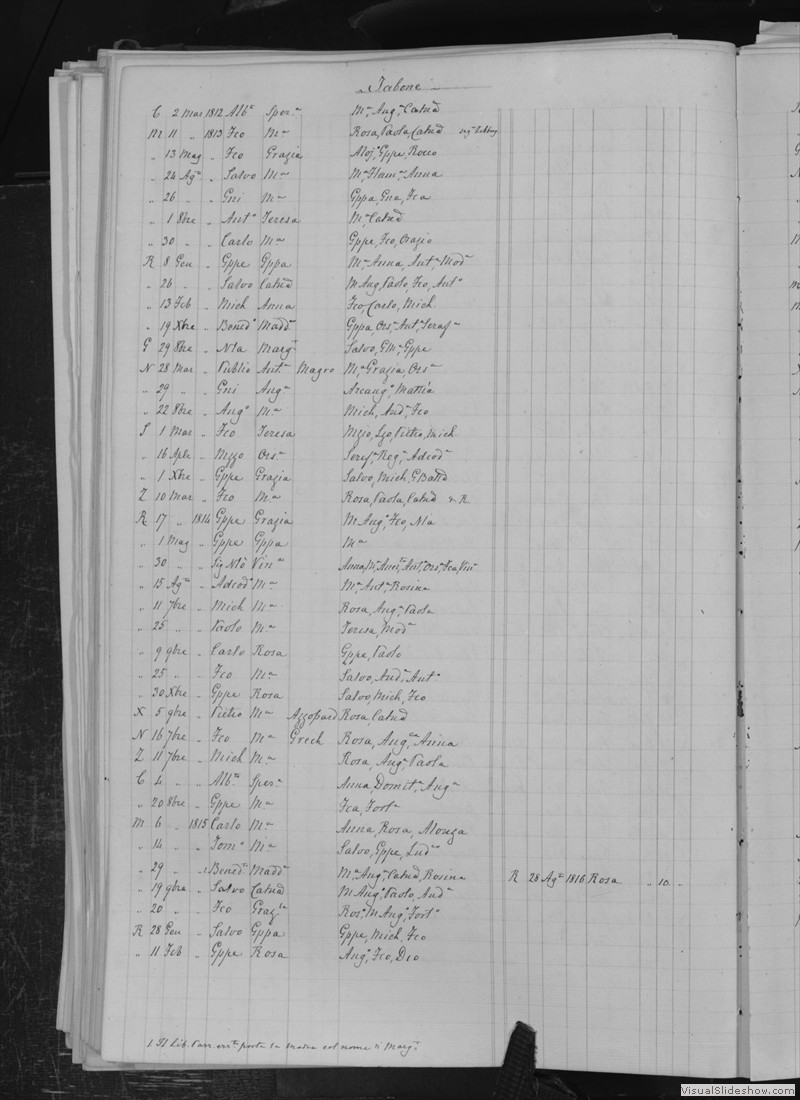 Tabone
C 2 Mar 1812 Alb.e Sper.a M.a Aug.a Catnd
M 11 „ 1813 Fco M.a Rosa, Paola, Catnd
„ 13 Mag „ Fco Grazia Aloj.o Gppe, Rocco
„ 24 Ag.o „ Salvo M.a M.a Anna
„ 26 „ „ Gni M.a Gppa, Gna, Fca
„ 1 8bre „ Ant.o Teresa M.a Catnd
„ 30 „ „ Carlo M.a Gppe, Fco, Orazio
R 8 Gen „ Gppe Gppa M.a Anna, Ant.a Mod.a
„ 26 „ „ Salvo Catnd M Aug, Paolo, Fco, Ant.o
„ 13 Feb „ Mich Anna Fco, Carlo, Mich
„ 19 Xbre „ Bened.o Madd.a Gppa Ors.a Ant.a Seraf.a
G 29 8bre „ Nla Marg.a Salvo, G M.a Gppe
N 28 Mar „ Publio Ant.a Magro M.a Grazia, Ors.a
„ 29 „ „ Gni Aug.a Arcang.o Mattia
„ 22 8bre „ Aug.o M.a Mich, And.a Fco
S 1 Mar „ Fco Teresa Mzio, Lzo, Pietro, Mich
„ 16 Aple „ Mzzo Ors.a Seraf.a Reg.a Adeod.a
„ 1 Xbre „ Gppe Grazia Salvo, Mich, GBatta
Z 10 Mar „ Fco M.a Rosa, Paola, Catnd v. R
R 17 „ 1814 Gppe Grazia M Aug.o Fco, Nla
„ 1 Mag „ Gppe Gppa M.a
„ 30 „ „ Sig Nlò Vin.a Anna, M.a Ant.a Ors.a Fca, Vin.a
„ 15 Ag.o „ Adeod.o M.a M.a Ant.a Rosina
„ 11 7bre „ Mich M.a Rosa, Aug.a Paola
„ 25 „ „ Paolo M.a Teresa, Mod.a
„ 9 9bre „ Carlo Rosa Gppe, Paolo
„ 25 „ „ Fco M.a Salvo, And.a Ant.o
„ 30 Xbre „ Gppe Rosa Salvo, Mich, Fco
X 5 9bre „ Pietro M.a Azzopard Rosa, Catnd
N 16 7bre „ Fco M.a Grech Rosa, Aug.a Anna
Z 11 7bre „ Mich M.a Rosa, Aug.a Paola
C 4 „ „ Alb.to Sper.a Anna, Domit.a Aug.a
„ 20 8bre „ Gppe M.a Fca, Fort.a
M 6 „ 1815 Carlo M.a Anna, Rosa, Alonza
„ 14 „ „ Tom.o M.a Salvo, Gppe, Lud.o
„ 29 „ „ Bened.o Madd.a M.a Aug.a Catnd, Rosina R 28 Ag.o 1816 Rosa „ 10 „
„ 19 9bre „ Salvo Catnd M Aug.o Paolo, And.a
„ 20 „ „ Fco Graz.ia Ros.o M Aug.o Fort.o
R 28 Gen „ Salvo Gppa Gppe, Mich, Fco
„ 11 Feb „ Gppe Rosa Aug.o Fco, Dio
1. Il Lib. Parr. err.te porta la madre col nome di Marg.a
VisualSlideshow.com